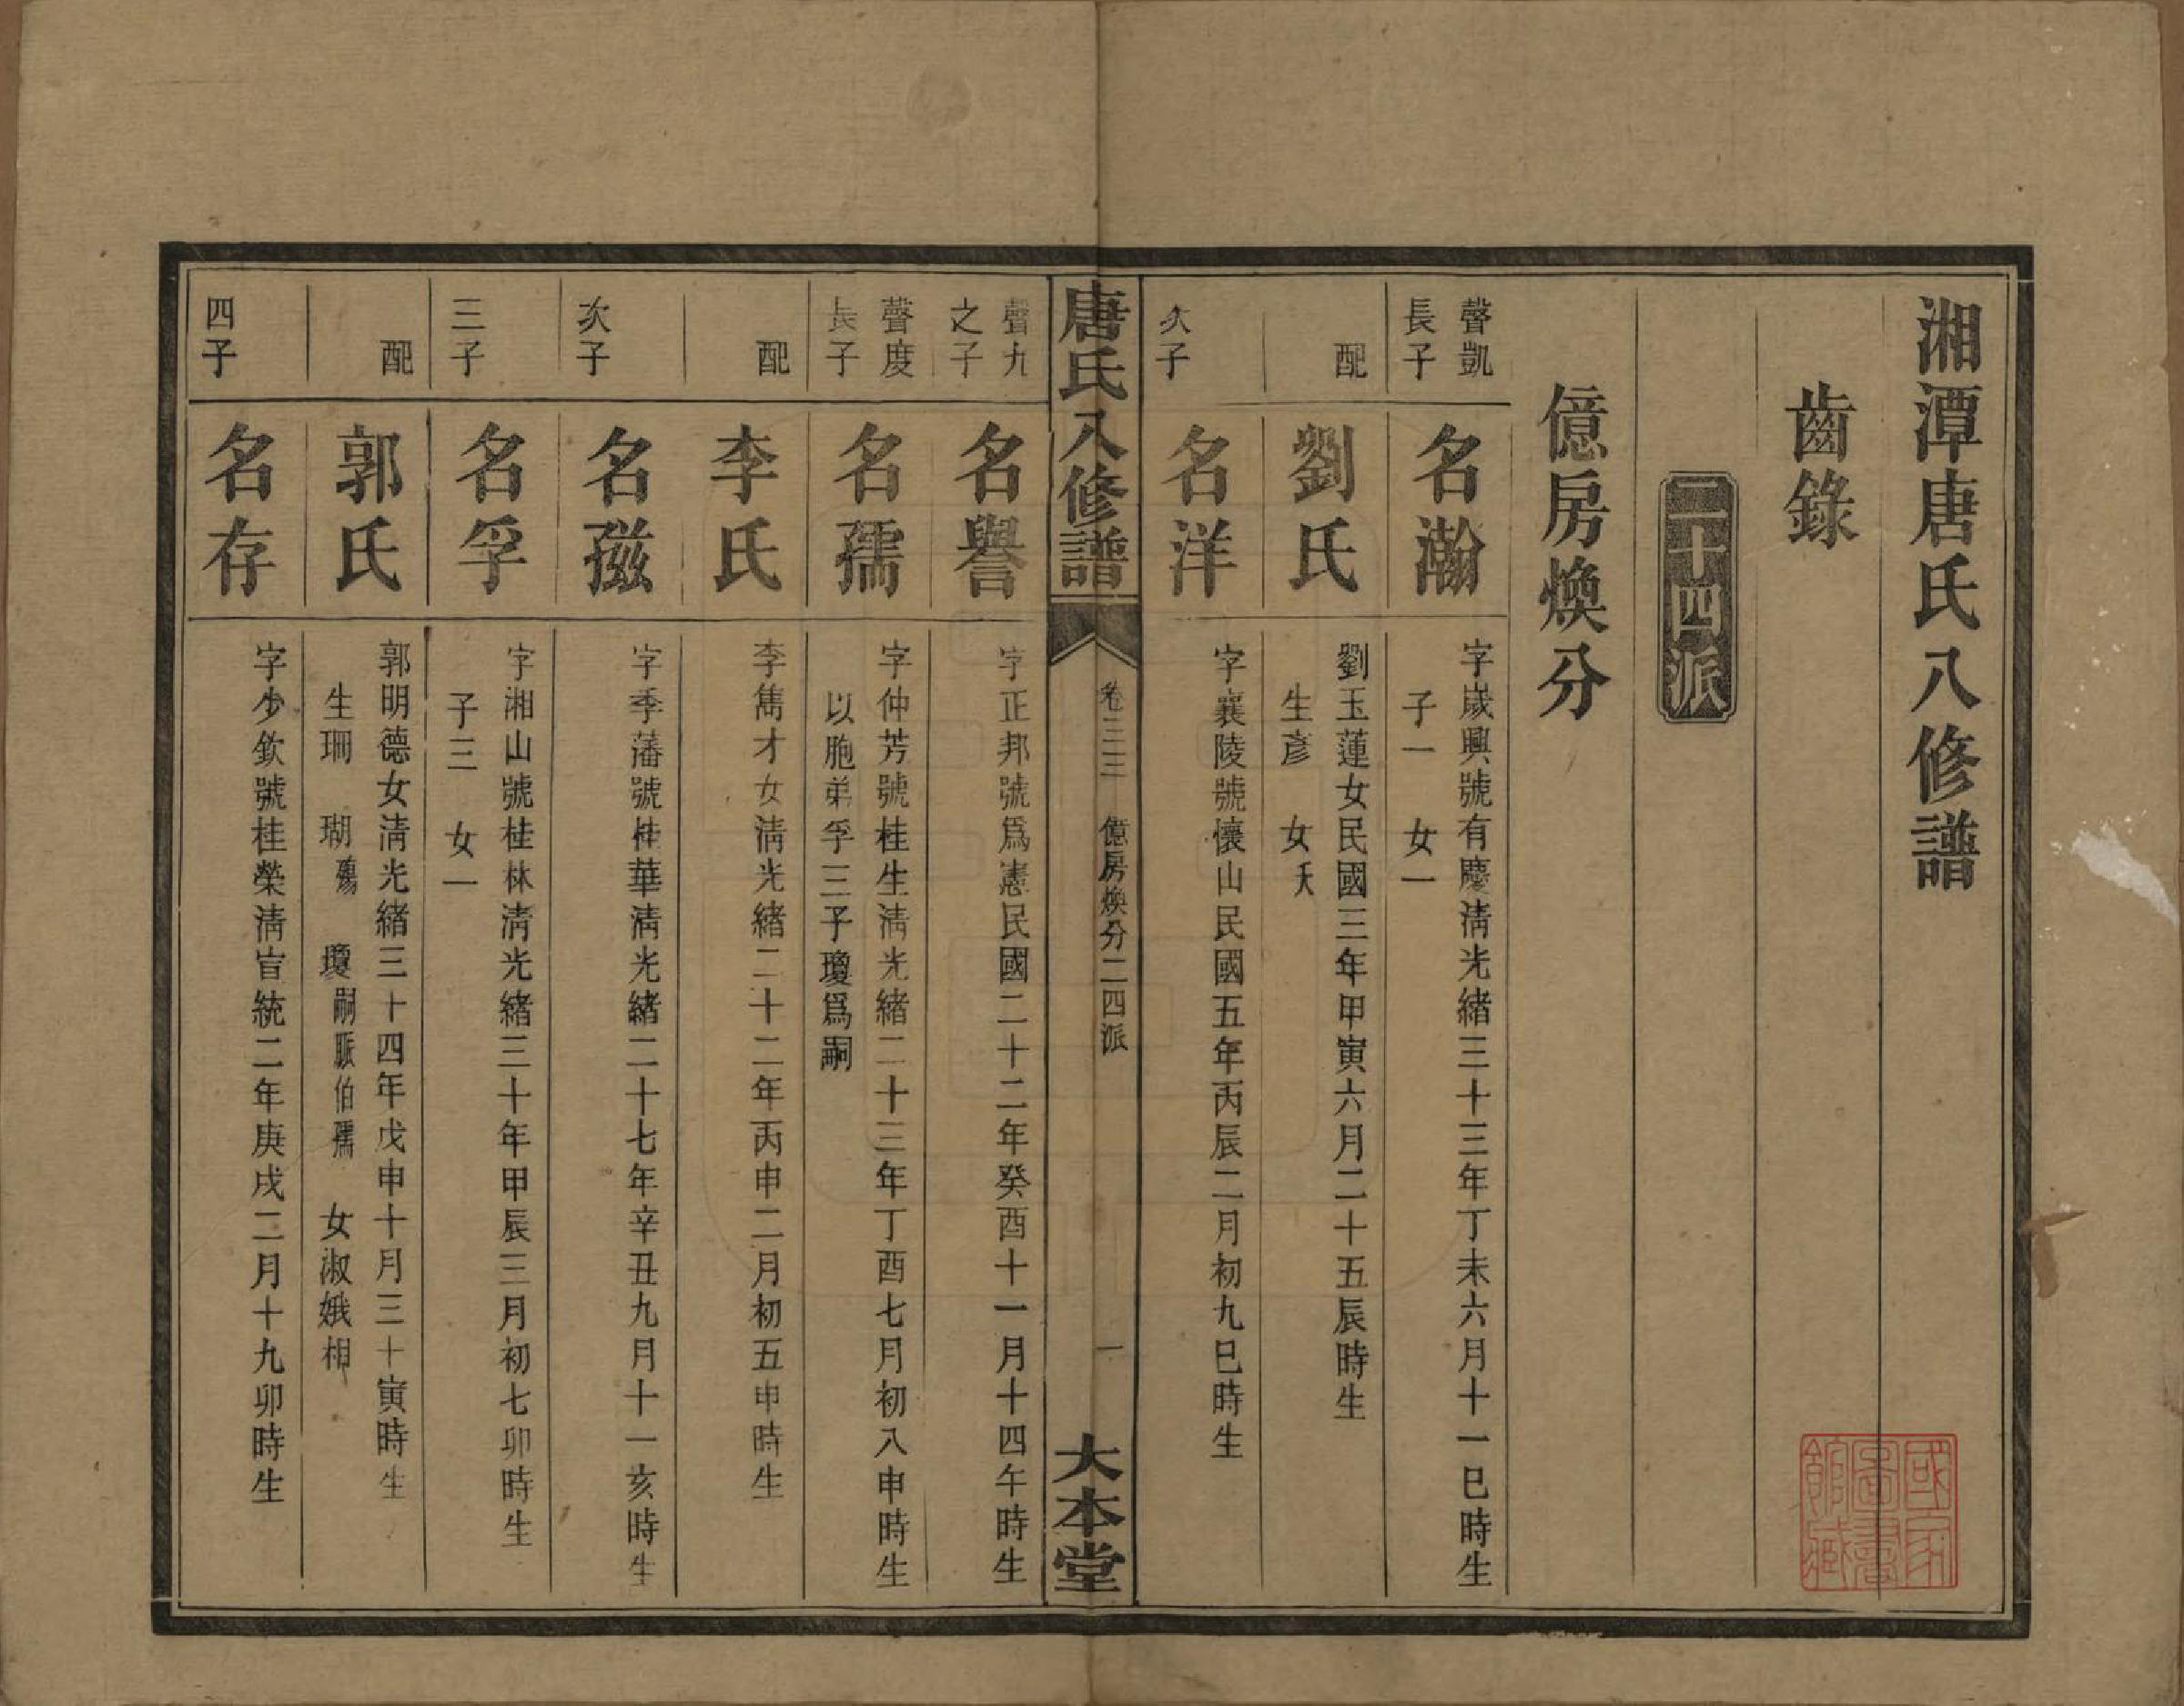 湘潭唐氏八修譜
齒錄
二十四派
億房煥分
聲凱
長子
名瀚
字崴興號有慶清光緒三十三年丁未六月十一巳時生
子一 女一
配
劉氏
劉玉蓮女民國三年甲寅六月二十五辰時生
生彥 女夭
次子
名洋
字襄陵號懷山民國五年丙辰二月初九巳時生
唐氏八修譜
卷三三 億房煥分二四派
一
大本堂
聲九
之子
名譽
字正邦號爲憲民國二十二年癸酉十一月十四午時生
聲度
長子
名孺
字仲芳號桂生清光緒二十三年丁酉七月初八申時生
以胞弟孚三子瓊爲嗣
配
李氏
李雋才女清光緒二十二年丙申二月初五申時生
次子
名孳
字季藩號桂華清光緒二十七年辛丑九月十一亥時生
三子
名孚
字湘山號桂林清光緒三十年甲辰三月初七卯時生
子三 女一
配
郭氏
郭明德女清光緒三十四年戊申十月三十寅時生
生珊 瑚殤 瓊嗣脈伯孺 女淑娥相
四子
名存
字少欽號桂榮清宣統二年庚戌二月十九卯時生
國家圖書館藏